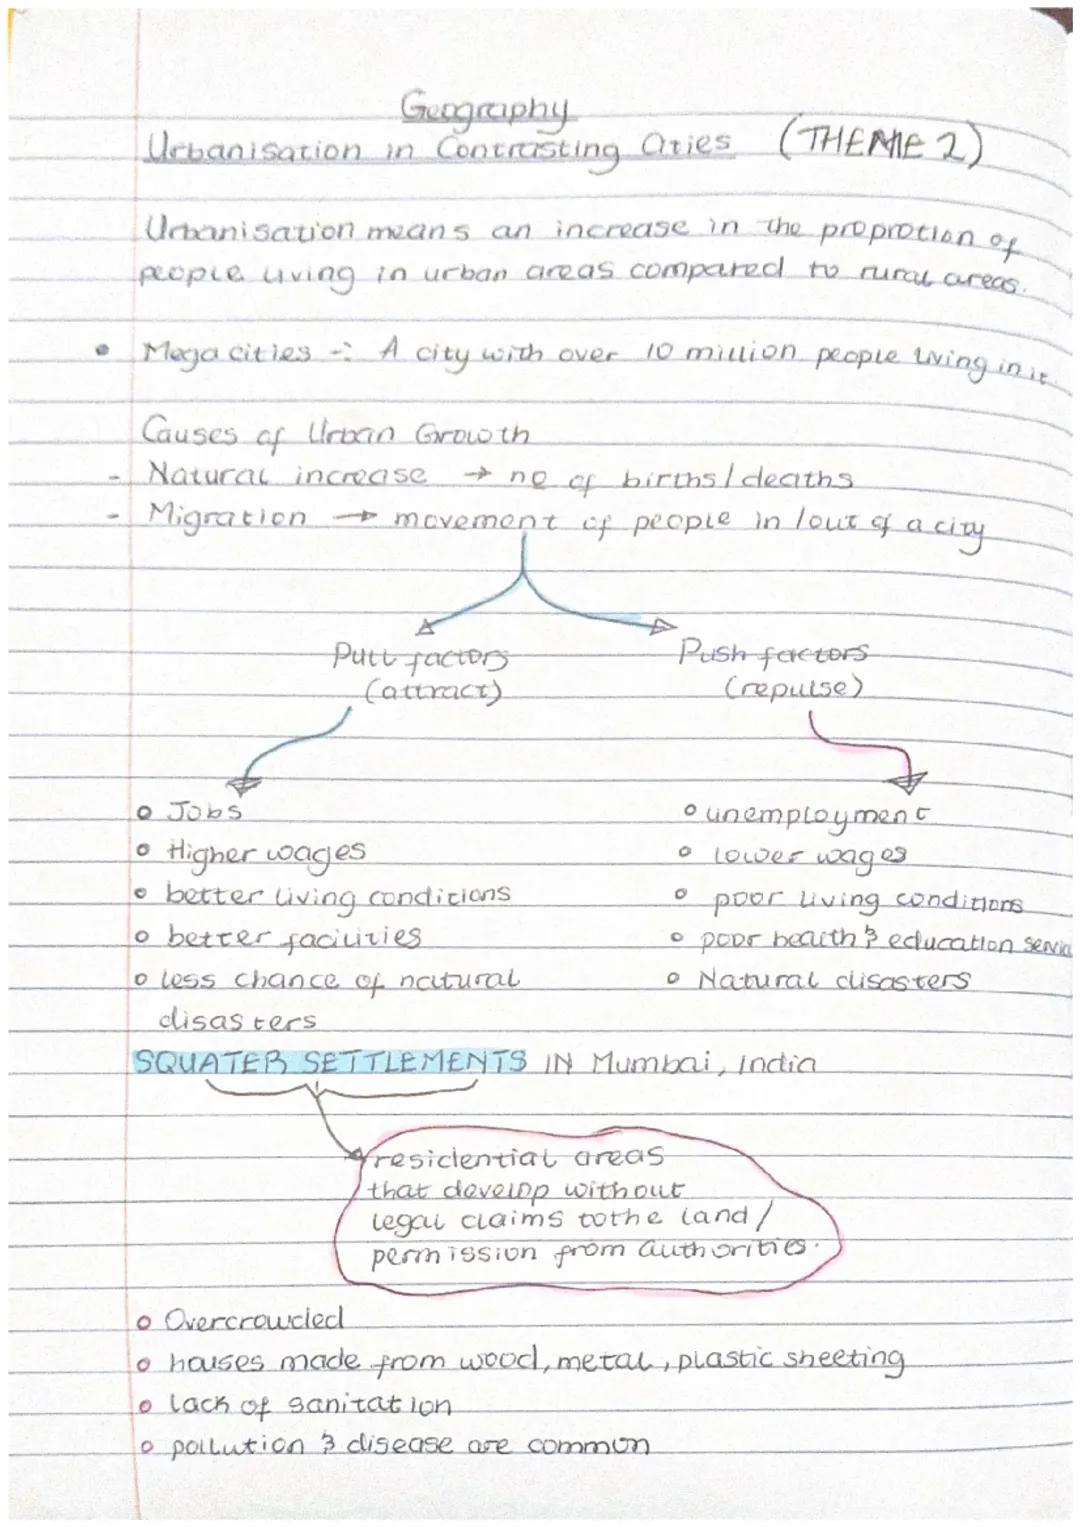 Geography
Urbanisation in Contrasting Cities (THEME 2)
Urbanisation means an increase in the proprotion of
people living in urban areas compared to rural areas.
• Mega cities -: A city with over 10 million people living in it
Causes of Urban Growth
- Natural increase → no of births/deaths
- Migration → movement of people in/out of a city
Pull factors
(attract)
Push factors
(repulse)
o Jobs
o Higher wages
o better living conditions
o better facilities
o less chance of natural
disasters
o unemployment
o lower wages
o poor living conditions
o poor health & education servic
o Natural disasters
SQUATER SETTLEMENTS IN Mumbai, India
residential areas
that develop without
legal claims to the land/
permission from authorities.
o Overcrowded
o houses made from wood, metal, plastic sheeting
o lack of sanitation
o pollution & disease are common